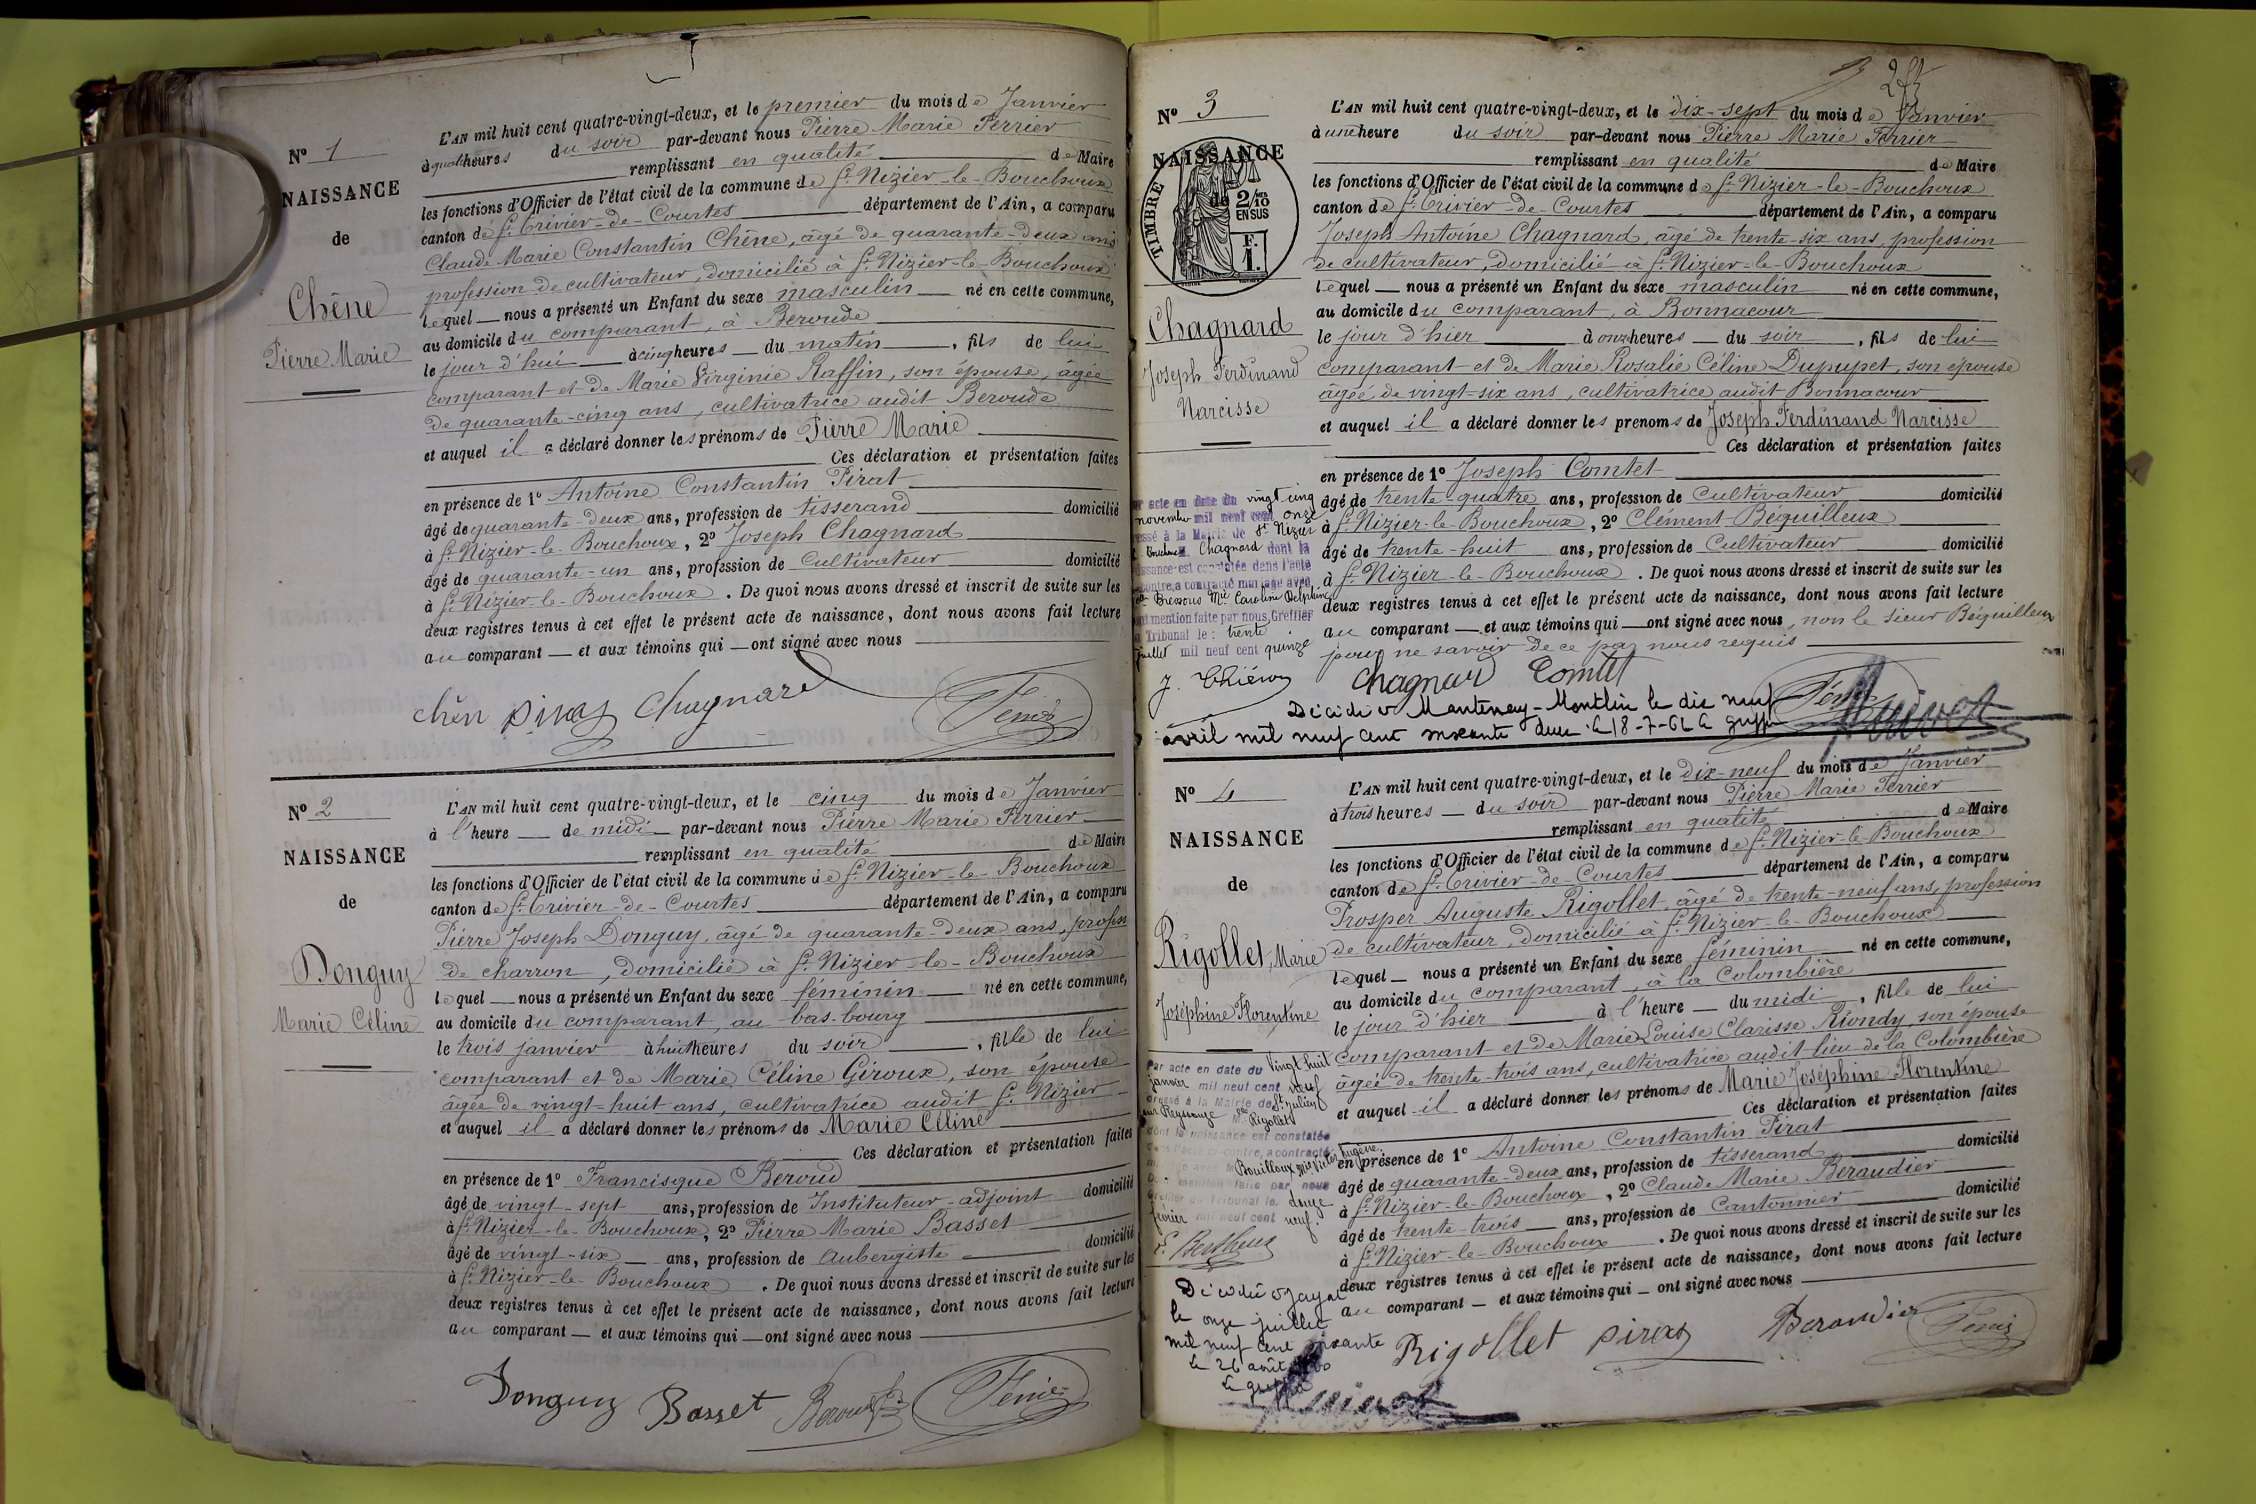 N° 1
NAISSANCE
de
Chêne
Pierre Marie
L'AN mil huit cent quatre-vingt-deux, et le premier du mois de Janvier
à quatre heures du soir par-devant nous Pierre Marie Ferrier
remplissant en qualité de Maire
les fonctions d'Officier de l'état civil de la commune de St Nizier-le-Bouchoux
canton de St Trivier-de-Courtes département de l'Ain, a comparu
Claude Marie Constantin Chêne, âgé de quarante-deux ans
profession de cultivateur, domicilié à St Nizier-le-Bouchoux
lequel nous a présenté un Enfant du sexe masculin né en cette commune,
au domicile du comparant, à Beroude
le jour d'hui à cinq heures du matin, fils de lui
comparant et de Marie Virginie Raffin, son épouse, âgée
de quarante-cinq ans, cultivatrice audit Beroude
et auquel il a déclaré donner les prénoms de Pierre Marie
Ces déclaration et présentation faites
en présence de 1° Antoine Constantin Pirat
âgé de quarante-deux ans, profession de tisserand domicilié
à St Nizier-le-Bouchoux, 2° Joseph Chagnard
âgé de quarante-un ans, profession de Cultivateur domicilié
à St Nizier-le-Bouchoux. De quoi nous avons dressé et inscrit de suite sur les
deux registres tenus à cet effet le présent acte de naissance, dont nous avons fait lecture
au comparant et aux témoins qui ont signé avec nous
chên pirat Chagnard Ferrier
N° 2
NAISSANCE
de
Donguy
Marie Céline
L'AN mil huit cent quatre-vingt-deux, et le cinq du mois de Janvier
à l'heure de midi par-devant nous Pierre Marie Ferrier
remplissant en qualité de Maire
les fonctions d'Officier de l'état civil de la commune de St Nizier-le-Bouchoux
canton de St Trivier-de-Courtes département de l'Ain, a comparu
Pierre Joseph Donguy, âgé de quarante-deux ans, profession
de charron, domicilié à St Nizier-le-Bouchoux
lequel nous a présenté un Enfant du sexe féminin né en cette commune,
au domicile du comparant, au bas-bourg
le trois janvier à huit heures du soir, fille de lui
comparant et de Marie Céline Giroux, son épouse
âgée de vingt-huit ans, cultivatrice audit St Nizier
et auquel il a déclaré donner les prénoms de Marie Céline
Ces déclaration et présentation faites
en présence de 1° Francisque Beroud
âgé de vingt-sept ans, profession de Instituteur-adjoint domicilié
à St Nizier-le-Bouchoux, 2° Pierre Marie Basset
âgé de vingt-six ans, profession de Aubergiste domicilié
à St Nizier-le-Bouchoux. De quoi nous avons dressé et inscrit de suite sur les
deux registres tenus à cet effet le présent acte de naissance, dont nous avons fait lecture
au comparant et aux témoins qui ont signé avec nous
Donguy Basset Beroud Ferrier
N° 3
NAISSANCE
de
TIMBRE
2/10
EN SUS
F.
1.
Chagnard
Joseph Ferdinand
Narcisse
L'AN mil huit cent quatre-vingt-deux, et le dix-sept du mois de Janvier
à une heure du soir par-devant nous Pierre Marie Ferrier
remplissant en qualité de Maire
les fonctions d'Officier de l'état civil de la commune de St Nizier-le-Bouchoux
canton de St Trivier-de-Courtes département de l'Ain, a comparu
Joseph Antoine Chagnard, âgé de trente-six ans, profession
de cultivateur, domicilié à St Nizier-le-Bouchoux
lequel nous a présenté un Enfant du sexe masculin né en cette commune,
au domicile du comparant, à Bonnacour
le jour d'hier à onze heures du soir, fils de lui
comparant et de Marie Rosalie Céline Dupupet, son épouse
âgée de vingt-six ans, cultivatrice audit Bonnacour
et auquel il a déclaré donner les prenoms de Joseph Ferdinand Narcisse
Ces déclaration et présentation faites
en présence de 1° Joseph Comtet
âgé de trente-quatre ans, profession de Cultivateur domicilié
à St Nizier-le-Bouchoux, 2° Clément Béguilleux
âgé de trente-huit ans, profession de Cultivateur domicilié
à St Nizier-le-Bouchoux. De quoi nous avons dressé et inscrit de suite sur les
deux registres tenus à cet effet le présent acte de naissance, dont nous avons fait lecture
au comparant et aux témoins qui ont signé avec nous, non le sieur Béguilleux
pour ne savoir de ce par nous requis
acte en date du vingt cinq
novembre mil neuf cent onze
à la Mairie de St Nizier
Chagnard dont la
naissance est constatée dans l'acte
contre, a contracté mariage avec
Bressoud Mie Caroline Delphine
mention faite par nous, Greffier
Tribunal le: trente
juillet mil neuf cent quinze
Chagnard Comtet Ferrier
Décédé à Mantenay-Montlin le dix neuf
avril mil neuf cent soixante deux
N° 4
NAISSANCE
de
Rigollet, Marie
Joséphine Florentine
L'AN mil huit cent quatre-vingt-deux, et le dix-neuf du mois de Janvier
à trois heures du soir par-devant nous Pierre Marie Ferrier
remplissant en qualité de Maire
les fonctions d'Officier de l'état civil de la commune de St Nizier-le-Bouchoux
canton de St Trivier-de-Courtes département de l'Ain, a comparu
Prosper Auguste Rigollet, âgé de trente-neuf ans, profession
de cultivateur, domicilié à St Nizier-le-Bouchoux
lequel nous a présenté un Enfant du sexe féminin né en cette commune,
au domicile du comparant, à la Colombière
le jour d'hier à l'heure du midi, fille de lui
comparant et de Marie Louise Clarisse Riondy, son épouse
âgée de trente-trois ans, cultivatrice audit lieu de la Colombière
et auquel il a déclaré donner les prénoms de Marie Joséphine Florentine
Ces déclaration et présentation faites
en présence de 1° Antoine Constantin Pirat
âgé de quarante-deux ans, profession de tisserand domicilié
à St Nizier-le-Bouchoux, 2° Claude Marie Beraudier
âgé de trente-trois ans, profession de Cantonnier domicilié
à St Nizier-le-Bouchoux. De quoi nous avons dressé et inscrit de suite sur les
deux registres tenus à cet effet le présent acte de naissance, dont nous avons fait lecture
au comparant et aux témoins qui ont signé avec nous
Par acte en date du vingt huit
janvier mil neuf cent neuf
dressé à la Mairie de St Julien
sur Reyssouze Rigollet
dont la naissance est constatée
contre, a contracté
Bouilloux Mie Victor Eugène
mention faite par nous
Greffier du Tribunal le douze
février mil neuf cent neuf.
Décédée à Jayat
le onze juillet
mil neuf cent soixante
le 26 août
Rigollet pirat Beraudier Ferrier